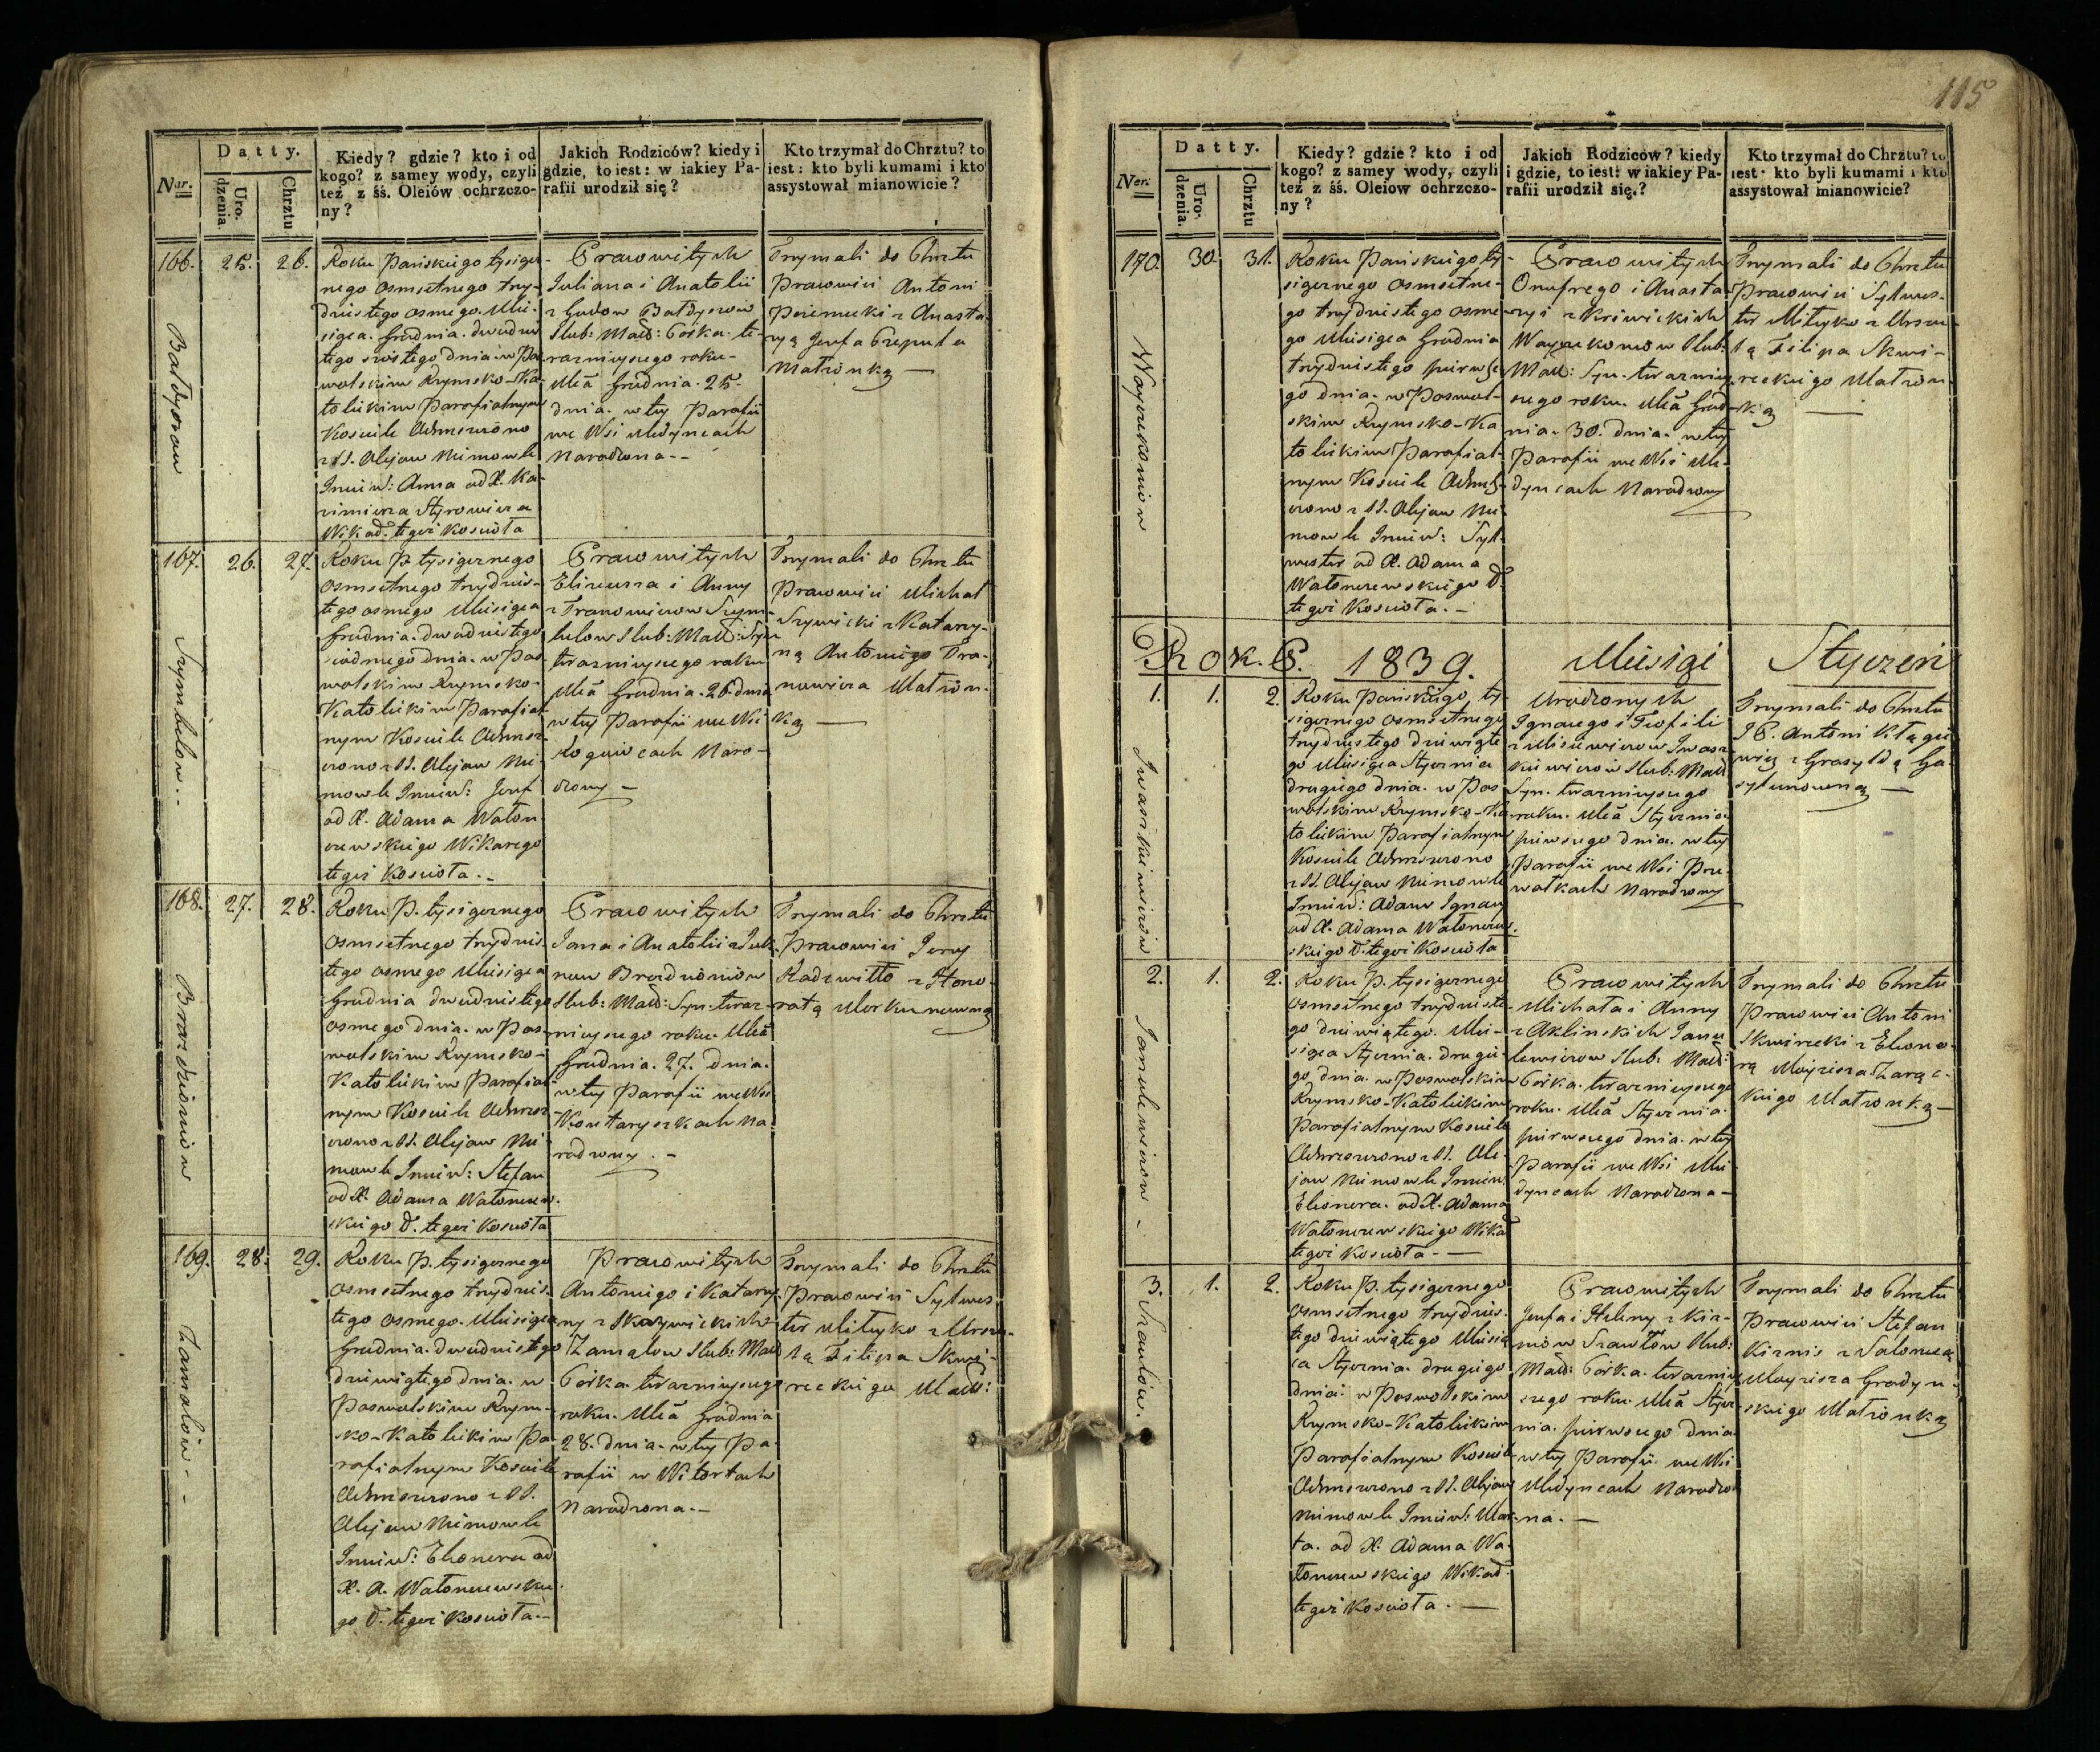 115
Datty.
Kiedy? gdzie? kto i od
kogo? z samey wody, czyli
też z śś. Oleiów ochrzczo-
ny?
Jakich Rodziców? kiedy i
gdzie, to iest: w iakiey Pa-
rafii urodził się?
Kto trzymał do Chrztu? to
iest: kto byli kumami i kto
assystował mianowicie?
Ner.
Uro-
dzenia.
Chrztu
166. 25. 26.
Roku Pańskiego tysiącz-
nego osmsetnego trzy-
dziestego osmego. Mie-
siąca. Grudnia. dwudzies
tego szóstego dnia. w Pos-
wolskim Rzymsko-Ka-
tolickim Parafialnym
Kosciele Ochrzczono
z SS. Olejow Niemowle
Imien: Anna od X. Ka-
zimierza Styrowicza
Wikad. tegoż Koscioła
Prawowitych
Juliana i Anatolii
z Gudow Bałdyzow
Slub: Małż: Córka te-
razniejszego roku-
Mcâ Grudnia. 25.
dnia. w tej Parafii
we Wsi Medyncach
Narodzona.-
Trzymali do Chrztu
Prawowici Antoni
z Anasta-
zyą Jozefa
Małżonką —
167. 26. 27.
Szymbelow.-
Roku P. tysiącznego
osmsetnego trzydzies-
tego osmego Miesiąca
Grudnia. dwudziestego
siodmego dnia. w Pos-
wolskim Rzymsko-
Katolickim Parafial
nym Kosciele Ochrz-
czono z SS. Olejow Nie-
mowle Imien: Jozef
od X. Adama Waton-
czewskiego Wikarego
tegoż Kosciola.-
Prawowitych
Elizeusza i Anny
z Tranowiczow Szym-
below Slub: Małż: Syn
terazniejszego roku
Mcâ Grudnia. 26. dnia
w tej Parafii we Wsi
Roguwcach Naro-
dzony —
Trzymali do Chrztu
Prawowici Michał
Szywicki z Katarzy-
ną Antoniego Tra-
nowicza Małżon-
ką —
168. 27. 28.
Brazdzioniow
Roku P. tysiącznego
osmsetnego trzydzies
tego osmego Miesiąca
Grudnia dwudziestego
osmego dnia. w Pos-
wolskim Rzymsko-
Katolickim Parafial
nym Kosciele Ochrz-
czono z SS. Olejow Nie-
mowle Imien: Stefan
od X. Adama Watonczew-
skiego W. tegoż Kosciola
Prawowitych
Jana i Anatolii
Slub: Małż: Syn. teraz-
niejszego roku. Mcâ
Grudnia. 27. dnia.
w tej Parafii we Wsi
Kontaryszkach Na
rodzony.-
Trzymali do Chrztu
Prawowici Jerzy
Radzwiłło z Hono-
ratą Morkunowną
169. 28. 29.
Zamalow.-
Roku P. tysiącznego
osmsetnego trzydzies-
tego osmego. Miesiąca
Grudnia. dwudziestego
dziewiątego dnia. w
Poswolskim Rzym-
sko-Katolickim Pa
rafialnym Kosciele
Ochrzczono z SS.
Olejow Niemowle
Imien: Eleonora od
X. A. Watonczewskie-
go W. tegoż Kosciola.-
Prawowitych
Antoniego i Katarzy-
ny z Skrzywickich
Zamalow Slub: Małż
Córka. terazniejszego
roku. Mcâ Grudnia
28. dnia. w tej Pa-
rafii w Witortach
Narodzona.-
Trzymali do Chrztu
Prawowici Sylwes
ter Mityko z Urszu-
lą Filipa Skwi-
reckiego Małż:
Datty.
Kiedy? gdzie? kto i od
kogo? z samey wody, czyli
też z śś. Oleiow ochrzczo-
ny?
Jakich Rodziców? kiedy
i gdzie, to iest: w iakiey Pa-
rafii urodził się.?
Kto trzymał do Chrztu? to
iest: kto byli kumami i kto
assystował mianowicie?
Ner.
Uro-
dzenia.
Chrztu
170. 30. 31.
Roku Pańskiego ty-
siącznego osmsetne-
go trzydziestego osme-
go Miesiąca Grudnia
trzydziestego pierwsze
go dnia. w Poswol-
skim Rzymsko-Ka
tolickim Parafial-
nym Kosciele Ochrz-
czono z SS. Olejow Nie
mowle Imien: Syl-
wester od X. Adama
Watonczewskiego W.
tegoż Kosciola.-
Prawowitych
Onufrego i Anasta-
zyi z Krzwickich
Slub:
Małż: Syn. terazniej
szego roku. Mcâ Grud-
nia. 30. dnia. w tej
Parafii we Wsi Me-
dyncach Narodzony
Trzymali do Chrztu
Prawowici Sylwes-
ter Mityko z Urszu-
lą Filipa Skwi-
reckiego Małżon-
ką —
Rok. P. 1839. Miesiąc Styczeń
1. 1. 2.
Iwaszkiewiczów
Roku Pańskiego ty-
siącznego osmsetnego
trzydziestego dziewiąte
go Miesiąca Stycznia
drugiego dnia. w Pos
wolskim Rzymsko-Ka
tolickim Parafialnym
Kosciele Ochrzczono
z SS. Olejow Niemowle
Imien: Adam Ignacy
od X. Adama Watonczew-
skiego W. tegoż Kosciola
Urodzonych
Ignacego i Teofili
z Misiewiczow Iwasz
kiewiczow Slub: Małż
Syn. terazniejszego
roku. Mcâ Stycznia
pierwszego dnia. w tej
Parafii we Wsi Prze-
wałkach Narodzony
Trzymali do Chrztu
J P. Antoni
z Grasyldą
2. 1. 2.
Janulewiczow -
Roku P. tysiącznego
osmsetnego trzydzieste-
go dziewiątego. Mie-
siąca Stycznia. drugie-
go dnia. w Poswolskim
Rzymsko-Katolickim
Parafialnym Kosciele
Ochrzczono z SS. Ole-
jow Niemowle Imien:
Eleonora. od X. Adama
Watonczewskiego Wika
tegoż Kosciola.—
Prawowitych
Michała i Anny
z Aklinskich Janu
lewiczow Slub: Małż:
Córka. terazniejszego
roku. Mcâ Stycznia.
pierwszego dnia. w tej
Parafii we Wsi Me-
dyncach Narodzona-
Trzymali do Chrztu
Prawowici Antoni
Skwirecki z Eleono-
rą Moyżesza
Małżonką—
3. 1. 2.
Szawłów.
Roku P. tysiącznego
osmsetnego trzydzies-
tego dziewiątego Miesią
ca Stycznia. drugiego
dnia. w Poswolskim
Rzymsko-Katolickim
Parafialnym Kosciele
Ochrzczono z SS. Olejow
Niemowle Imien: Mar-
ta. od X. Adama Wa-
tonczewskiego Wikad.
tegoż Kosciola.—
Prawowitych
Jozefa i Heleny z Kir-
niow Szawłow Slub:
Małż: Córka. terazniej
szego roku. Mcâ Stycz-
nia. pierwszego dnia.
w tej Parafii. we Wsi
Medyncach Narodzo
na.—
Trzymali do Chrztu
Prawowici Stefan
Kirnis z Salomeą
Moyżesza Gradyn-
skiego Małżonką